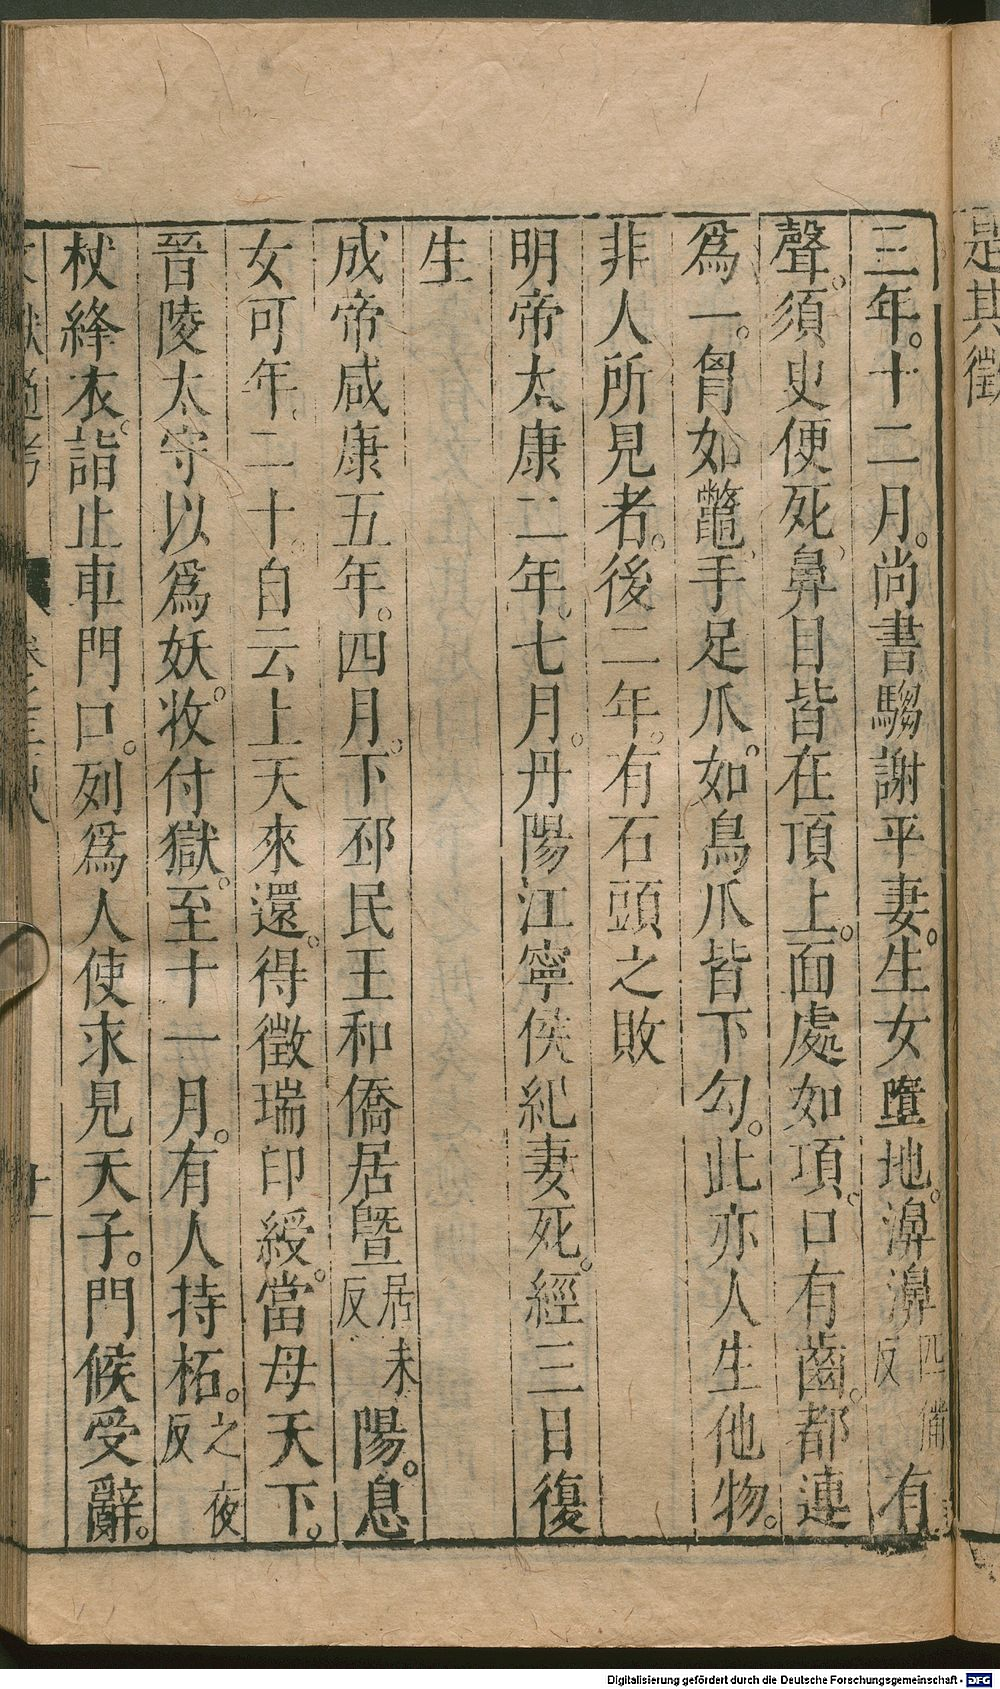 是其徵
三年。十二月。尚書騶謝平妻。生女墮地。濞濞匹備反有
聲。須史便死。鼻目皆在頂上。面處如項。口有齒。都連
爲一。胷如鼈。手足爪。如鳥爪皆下勾。此亦人生他物。
非人所見者。後二年。有石頭之敗
明帝太康二年。七月。丹陽江寧侯紀妻死。經三日復
生
成帝咸康五年。四月。下邳民王和僑居暨居未反陽。息
女可年。二十。自云上天來還。得徵瑞印綬。當母天下。
晉陵太守以爲妖。收付獄。至十一月。有人持柘。之夜反
杖絳衣。詣止車門口。列爲人使求見天子。門候受辭。
Digitalisierung gefördert durch die Deutsche Forschungsgemeinschaft - DFG